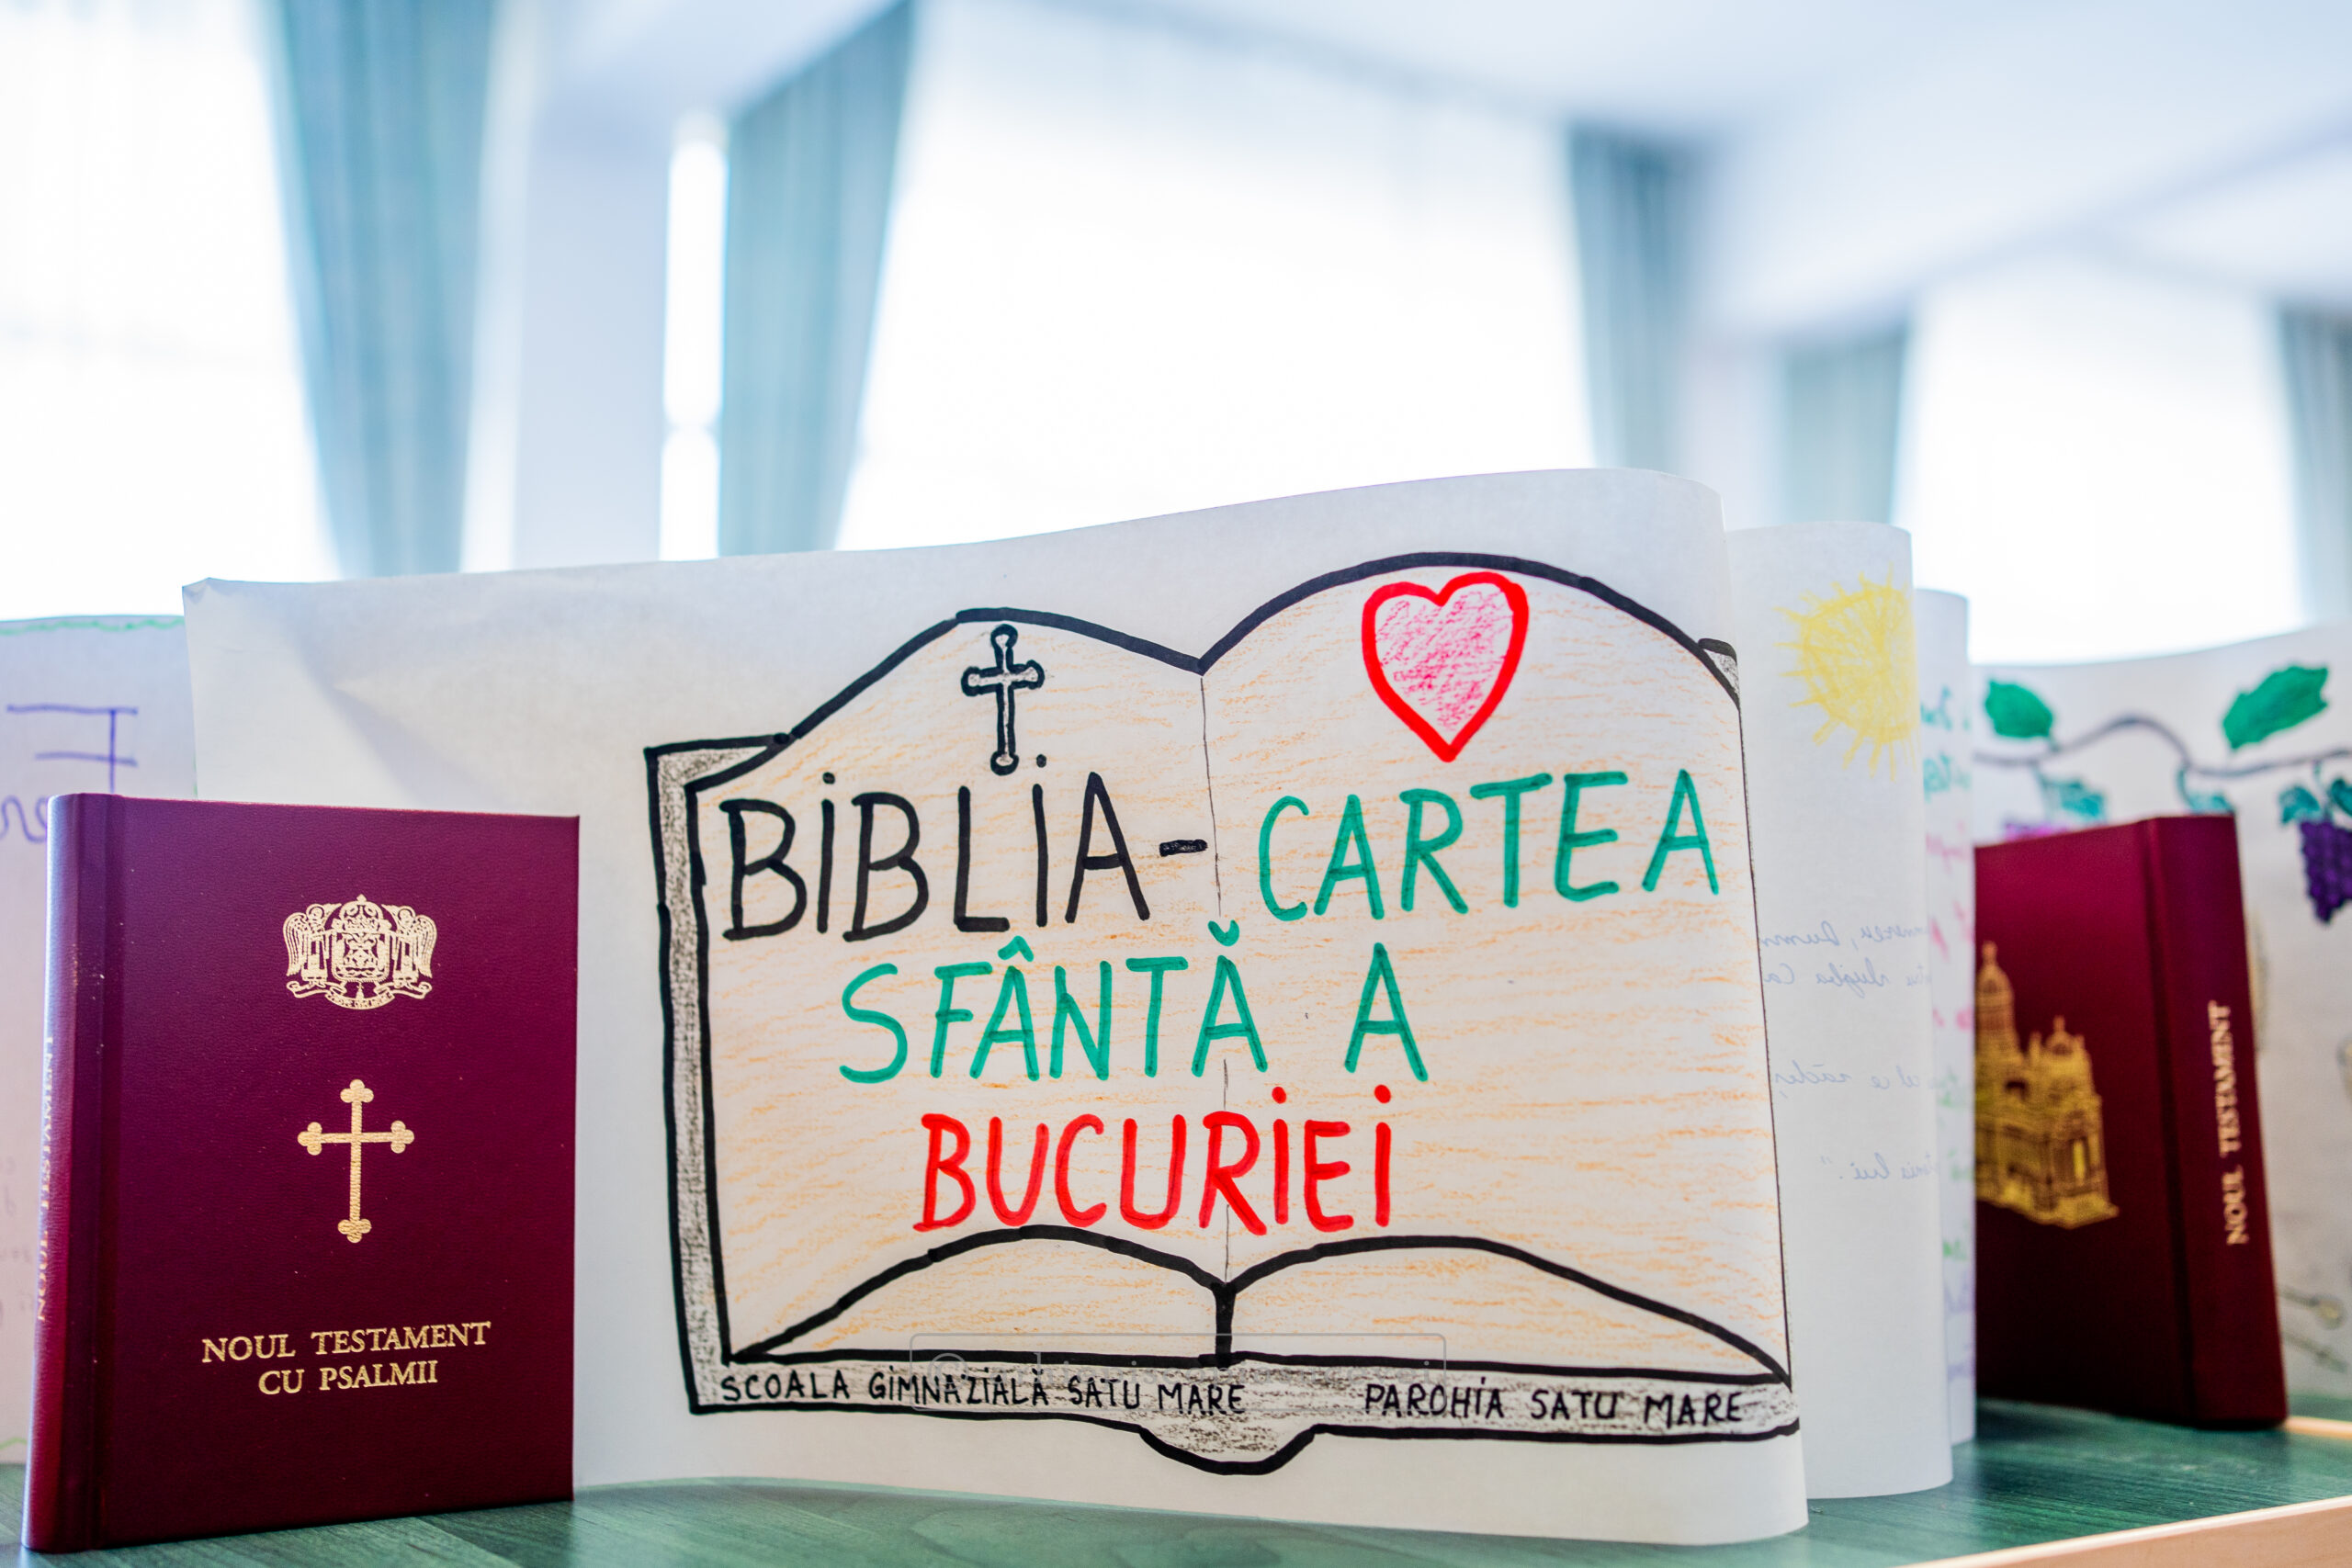 BIBLIA - CARTEA
SFÂNTĂ A
BUCURIEI
SCOALA GIMNAZIALĂ SATU MARE
PAROHIA SATU MARE
NOUL TESTAMENT
CU PSALMII
NOUL TESTAMENT
NOUL TESTAMENT